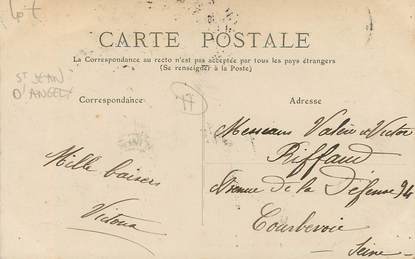 CARTE POSTALE
La Correspondance au recto n'est pas acceptée par tous les pays étrangers
(Se renseigner à la Poste)
ST JEAN
D'ANGELY
Correspondance
17
Adresse
Mille baisers
Victoria
Messieurs Valère et Victor
Riffaud
Avenue de la Défense 94
Courbevoie
Seine